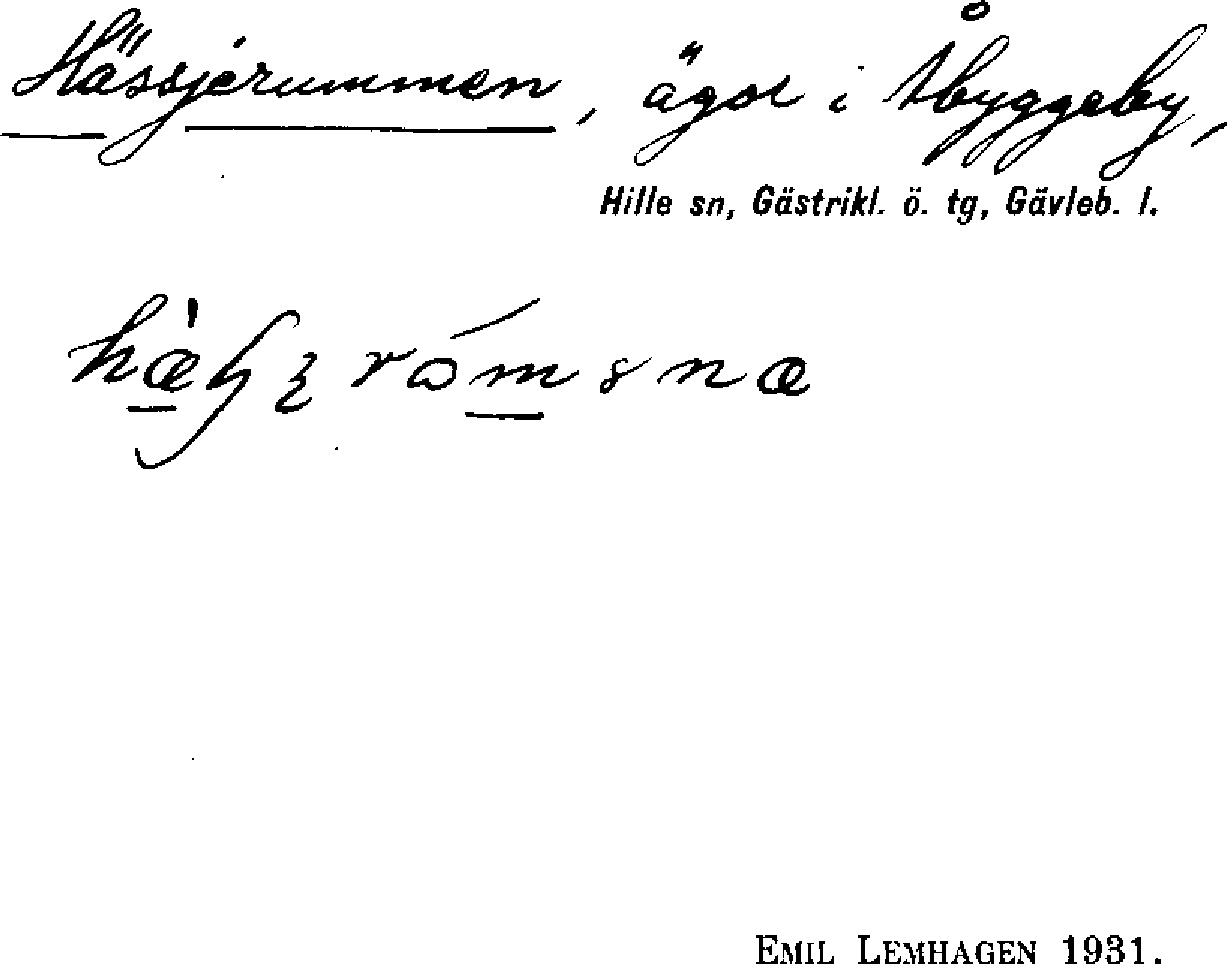 Hässjerummen, ägor i Åbyggeby,
Hille sn, Gästrikl. ö. tg, Gävleb. l.
EMIL LEMHAGEN 1931.